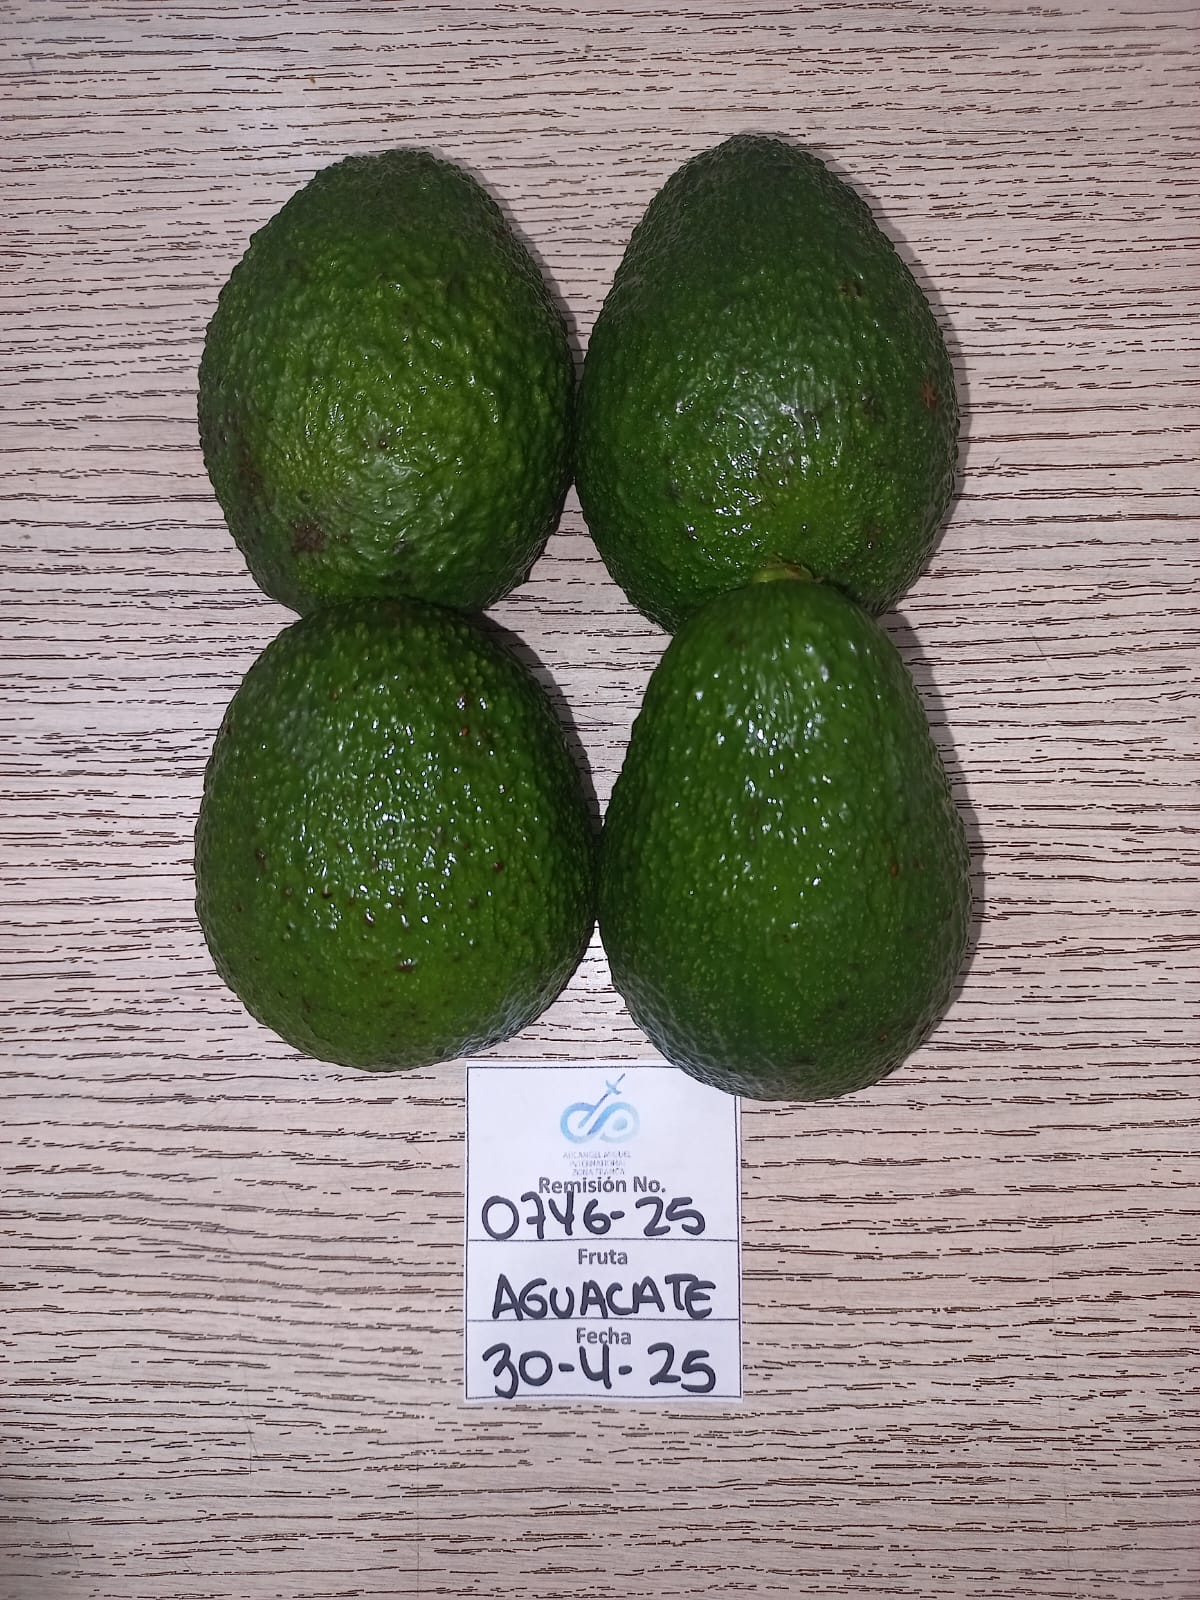 ARCANGEL MIGUEL
INTERNATIONAL
ZONA FRANCA
Remisión No.
0746-25
Fruta
AGUACATE
Fecha
30-4-25